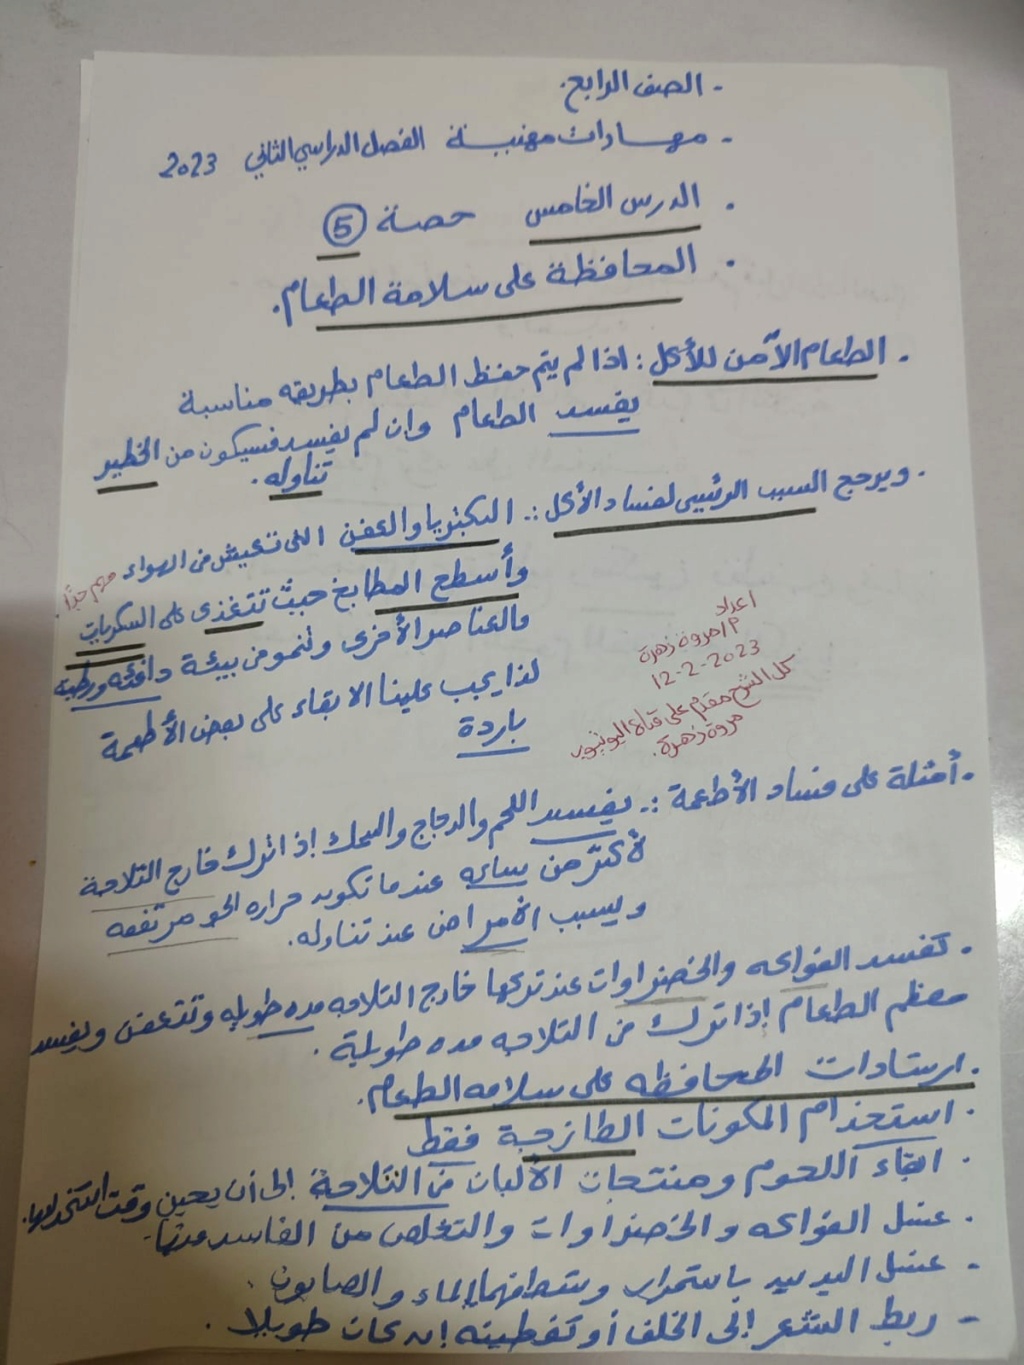 - الصف الرابع.
- مهارات مهنية الفصل الدراسي الثاني 2023
. الدرس الخامس حصة 5
. المحافظة على سلامة الطعام.
. الطعام الآمن للأكل : اذا لم يتم حفظ الطعام بطريقه مناسبة
يفسد الطعام وان لم يفسد فسيكون من الخطير
تناوله.
. ويرجع السبب الرئيسي لفساد الأكل :. البكتريا والعفن التى تعيش فى الهواء مهم جدًا.
وأسطح المطابخ حيث تتغذى على السكريات
والعناصر الأخرى وتنمو فى بيئة دافئه ورطبة
لذا يجب علينا الابقاء على بعض الأطعمة
باردة
اعداد
م/مروة زهرة
12-2-2023
كل الشرح مقدم على قناة اليوتيوب
مروة زهرة.
. أمثلة على فساد الأطعمة :. يفسد اللحم والدجاج والسمك إذا ترك خارج الثلاجة
لأكثر من ساعه عندما تكون حراره الجو مرتفعه
ويسبب الأمراض عند تناوله.
. تفسد الفواكه والخضراوات عند تركها خارج الثلاجه مده طويله وتتعفن ويفسد
معظم الطعام إذا ترك فى الثلاجه مده طويلة.
. ارشادات المحافظه على سلامه الطعام.
. استخدام المكونات الطازجة فقط
. ابقاء اللحوم ومنتجات الألبان فى الثلاجة إلى أن يحين وقت استخدامها.
. غسل الفواكه والخضراوات والتخلص من الفاسد منها.
- غسل اليدين باستمرار وشطفهما بالماء والصابون.
- ربط الشعر إلى الخلف أو تغطيته إن كان طويلا.